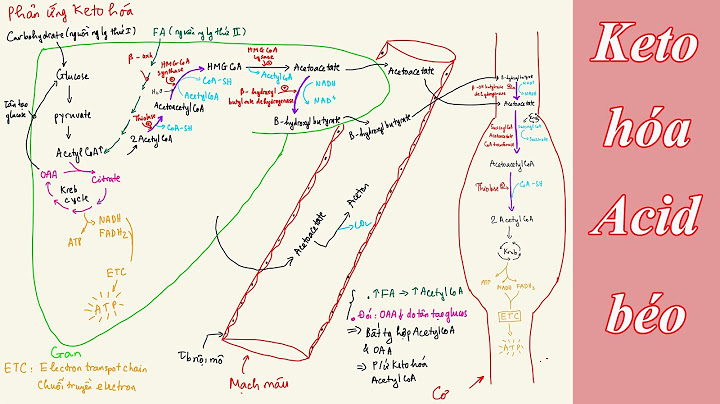 Phản ứng Keto hóa
Carbohydrate (nguồn ng lý thứ I)
FA (nguồn ng lý thứ II)
Glucose
pyruvate
Acetyl CoA↑
Tân tạo
glucose
OAA
Citrate
Kreb
cycle
NADH
FADH2
ATP
ETC
ATP
Gan
ETC: Electron transpot chain
Chuỗi truyền electron
β-oxh
2 Acetyl CoA
Thiolase
CoA-SH
Acetoacetyl CoA
H2O
HMG CoA
synthase
CoA-SH
Acetyl CoA
HMG CoA
HMG CoA
Lyase
Acetyl CoA
Acetoacetate
β-hydroxyl
butyrate dehydrogenase
NADH
NAD+
B-hydroxyl butyrate
Acetoacetate
B-hydroxyl butyrate
Acetoacetate
Aceton
CO2
Tb nội mô
Mạch máu
. ↑FA → ↑Acetyl CoA
. Đói: OAA↓ do tân tạo glucos
⇒ Bất tg hợp Acetyl CoA
& OAA
⇒ P/ứ Keto hóa
Acetyl CoA
Cơ
Acetoacetate
Succinate
Acetoacetyl CoA
Thiolase
CoA-SH
2 Acetyl CoA
Kreb
ATP
NADH
FADH2
ETC
ATP
Keto
hóa
Acid
béo